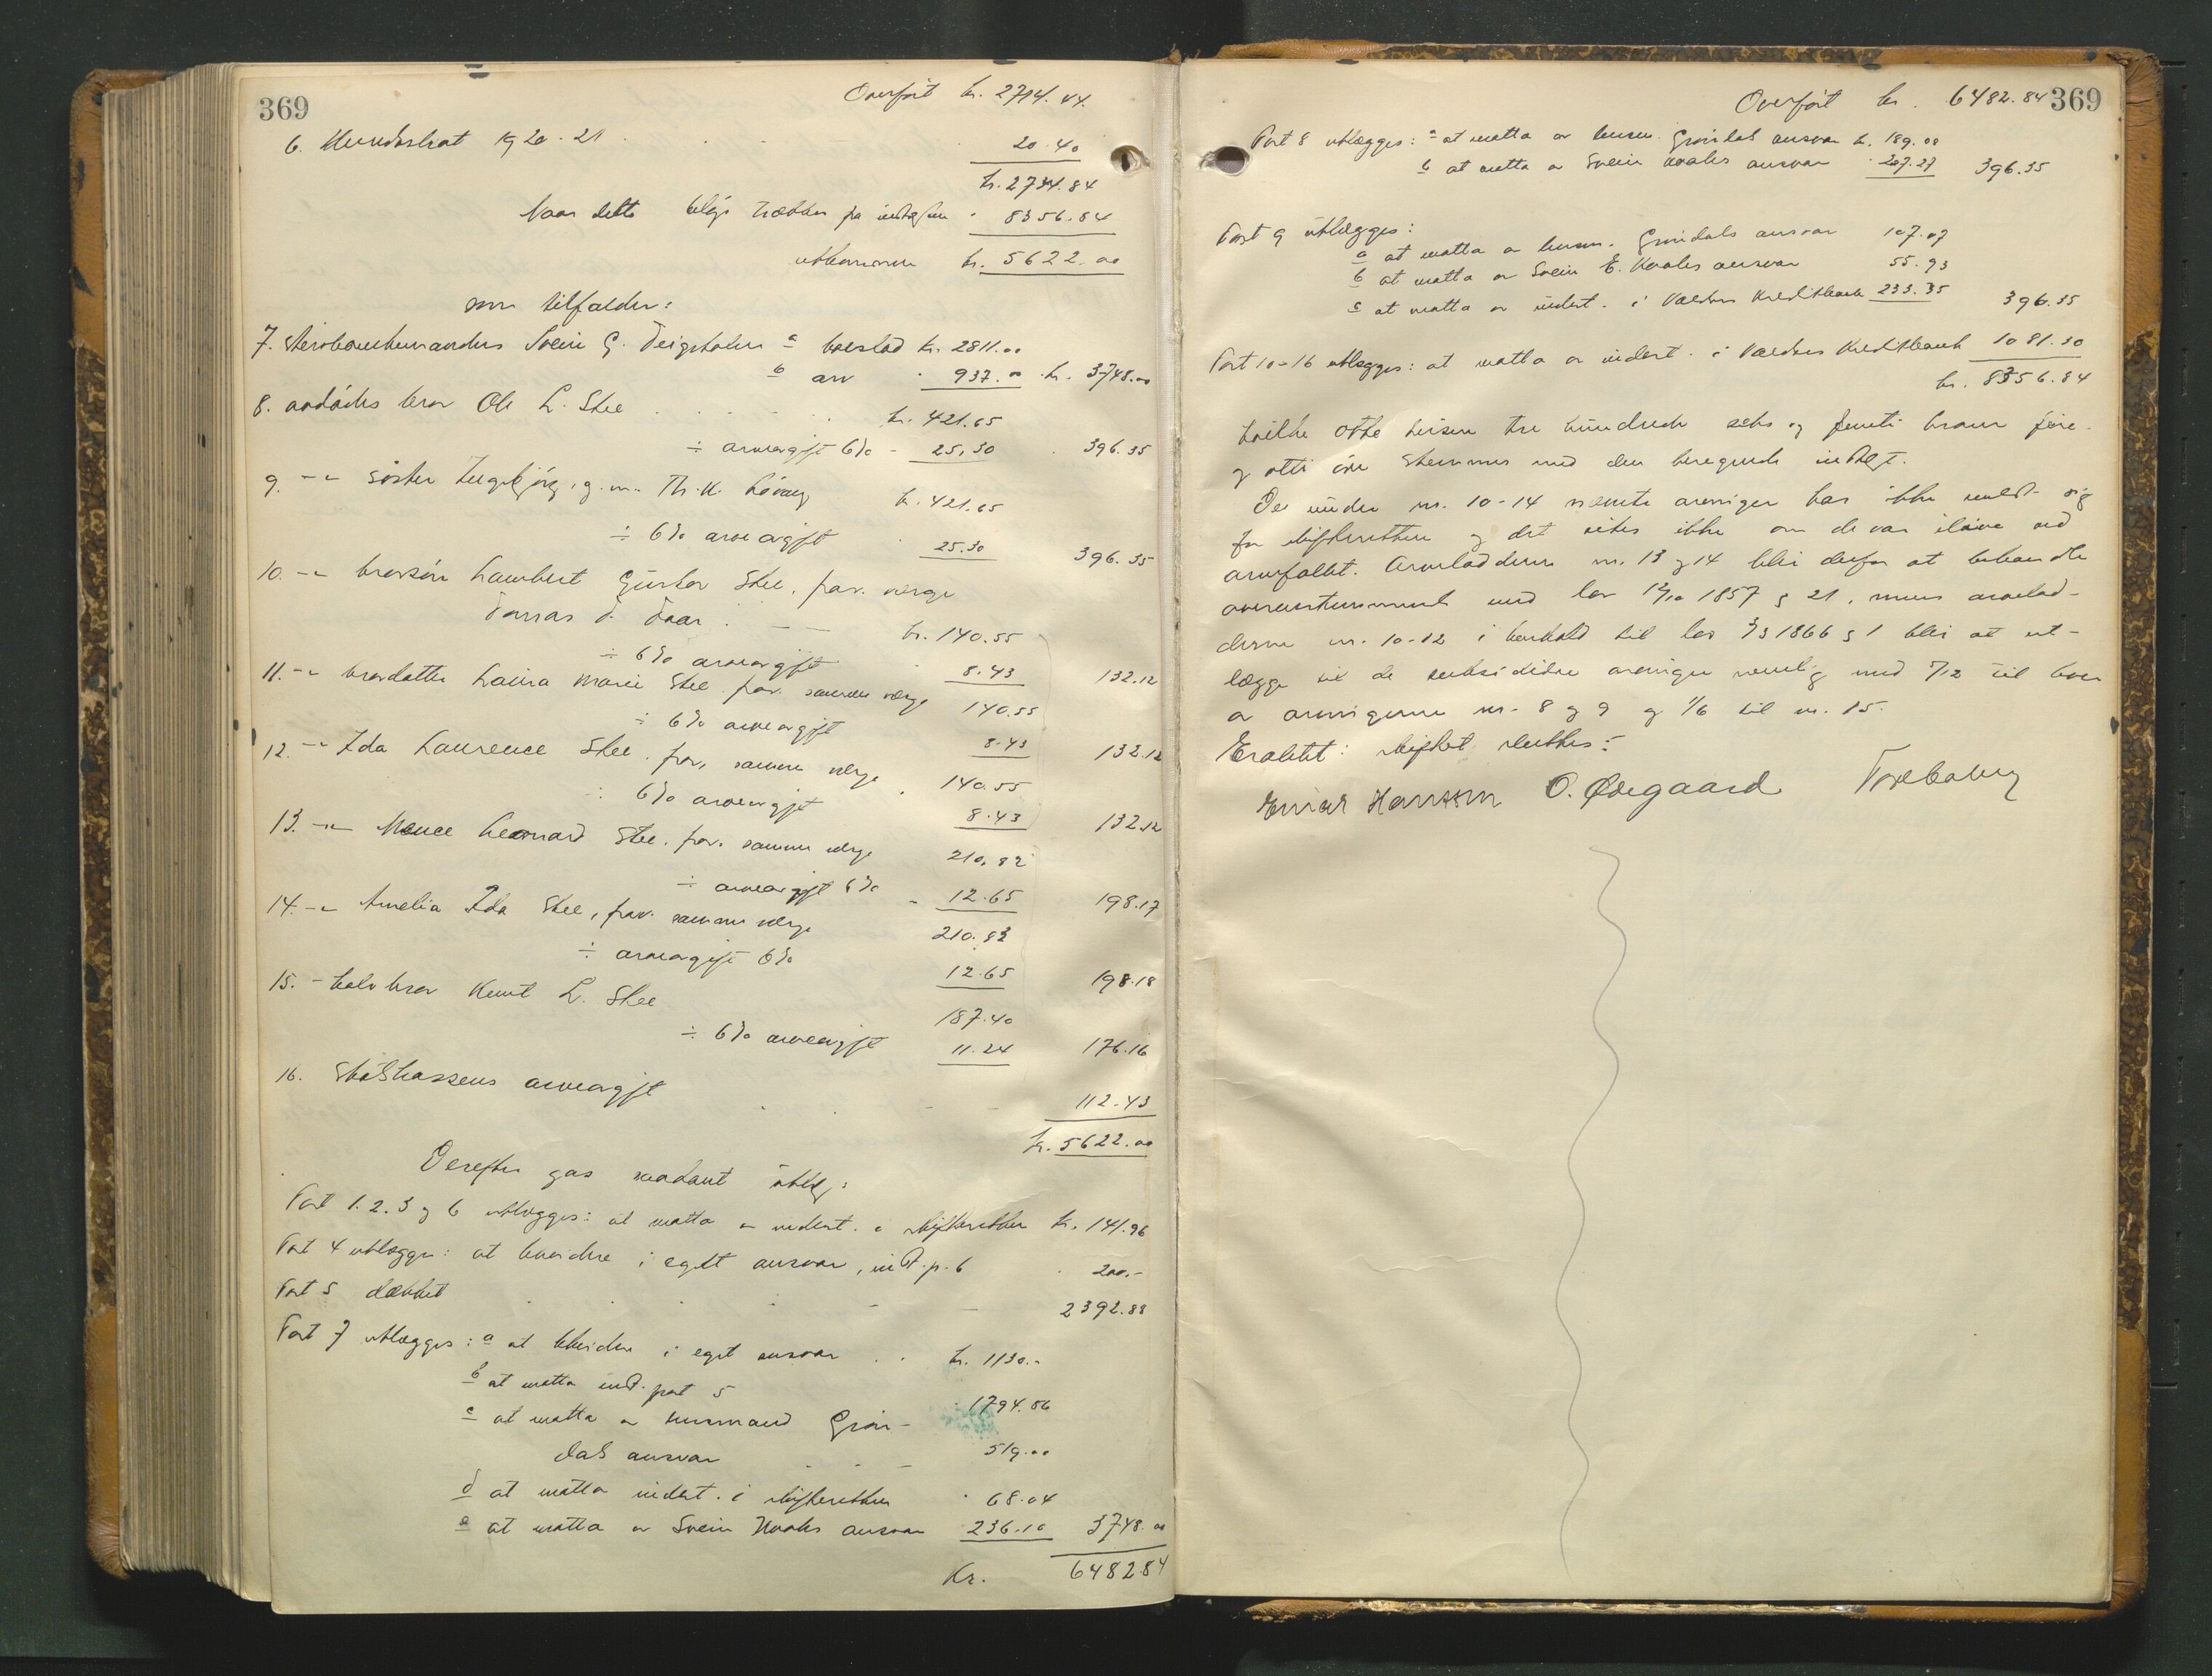 369
Overført kr. 2714.44.
6. Hundeskat 1920-21 . . . 20.40
kr. 2734.84
Naar dette beløp trækkes fra indtægten " 8356.84
utkommer kr. 5622.00
som tilfalder:
7. Stervboenkemanden Svein G. Deigstølen a boeslod kr. 2811.00
b arv " 937.00 kr. 3748.00
8. avdødes bror Ole L. Skee . . . kr. 421.65
÷ arveavgift 6% - 25,30 . 396.35
9. -"- søster Ingebjørg, g.m. Th. K. Lövaug kr. 421.65
÷ 6% arveavgift 25.30 396.35
10. -"- brorsön Lambert Gustav Skee, frav. verge
kr. 140.55
÷ 6% arveavgift 8.43 132.12
11. -"- brordatter Laura Marie Skee, frav. samme verge 140.55
÷ 6% arveavgift 8.43 132.12
12. -"- Ida Laurence Skee, frav. samme verge . 140.55
÷ 6% arveavgift 8.43 132.12
13. -"- Leonard Skee, frav. samme verge 210,82
÷ arveavgift 6% - 12.65 198.17
14. -"- Amelia Ida Skee, frav. samme verge 210.83
÷ arveavgift 6% 12.65 198.18
15. - halvbror Knut L. Skee 187.40
÷ 6% arveavgift 11.24 176.16
16. Statskassens arveavgift . . . 112.43
kr. 5622.00
Derefter gas saadant utlæg:
Post 1.2.3 og 6 utlægges: at motta av indest. i skifteretten kr. 141.96
Post 4 utlægges: at beholde i eget ansvar, indt. p. 6 . 200.-
Post 5 dækket . . . 2392.88
Post 7 utlægges: a at beholde i eget ansvar . . kr. 1130.-
b at motta indt. post 5 1794.86
c at motta av lensmand Grön-
dals ansvar . . . 519.00
d at motta indest. i skifteretten . 68.04
e at motta av Svein Kvales ansvar 236.10 3748.00
Kr. 6482.84
Overført kr. 6482.84
369
Post 8 utlægges: a at motta av lensm. Gröndals ansvar kr. 189.08
b at motta av Svein Kvales ansvar . 207.27 396.35
Post 9 utlægges:
a at motta av lensm. Gröndals ansvar 107.07
b at motta av Svein E. Kvales ansvar 55.93
c at motta av indest. i Valdres Kreditbank 233.35 396.35
Post 10-16 utlægges: at motta av indest. i Valdres Kreditbank 1081.30
kr. 8356.84
hvilke otte tusen tre hundrede seks og femti kroner fire-
og otti öre stemmer med den beregnede indtægt.
De under nr. 10-14 nævnte arvinger har ikke meldt sig
for skifteretten og det vites ikke om de var ilive ved
arvefaldet. Arvelodderne nr. 13 og 14 blir derfor at behandle
overensstemmende med lov 12/10 1857 § 21, mens arvelod-
derne nr. 10-12 i henhold til lov 3/3 1866 § 1 blir at ut-
lægge til de subsidiære arvinger nemlig med 5/12 til hver
av arvingerne nr. 8 og 9 og 1/6 til nr. 15.
Eralitet: skiftet sluttes:-
Einar Hanssen O. Ødegaard